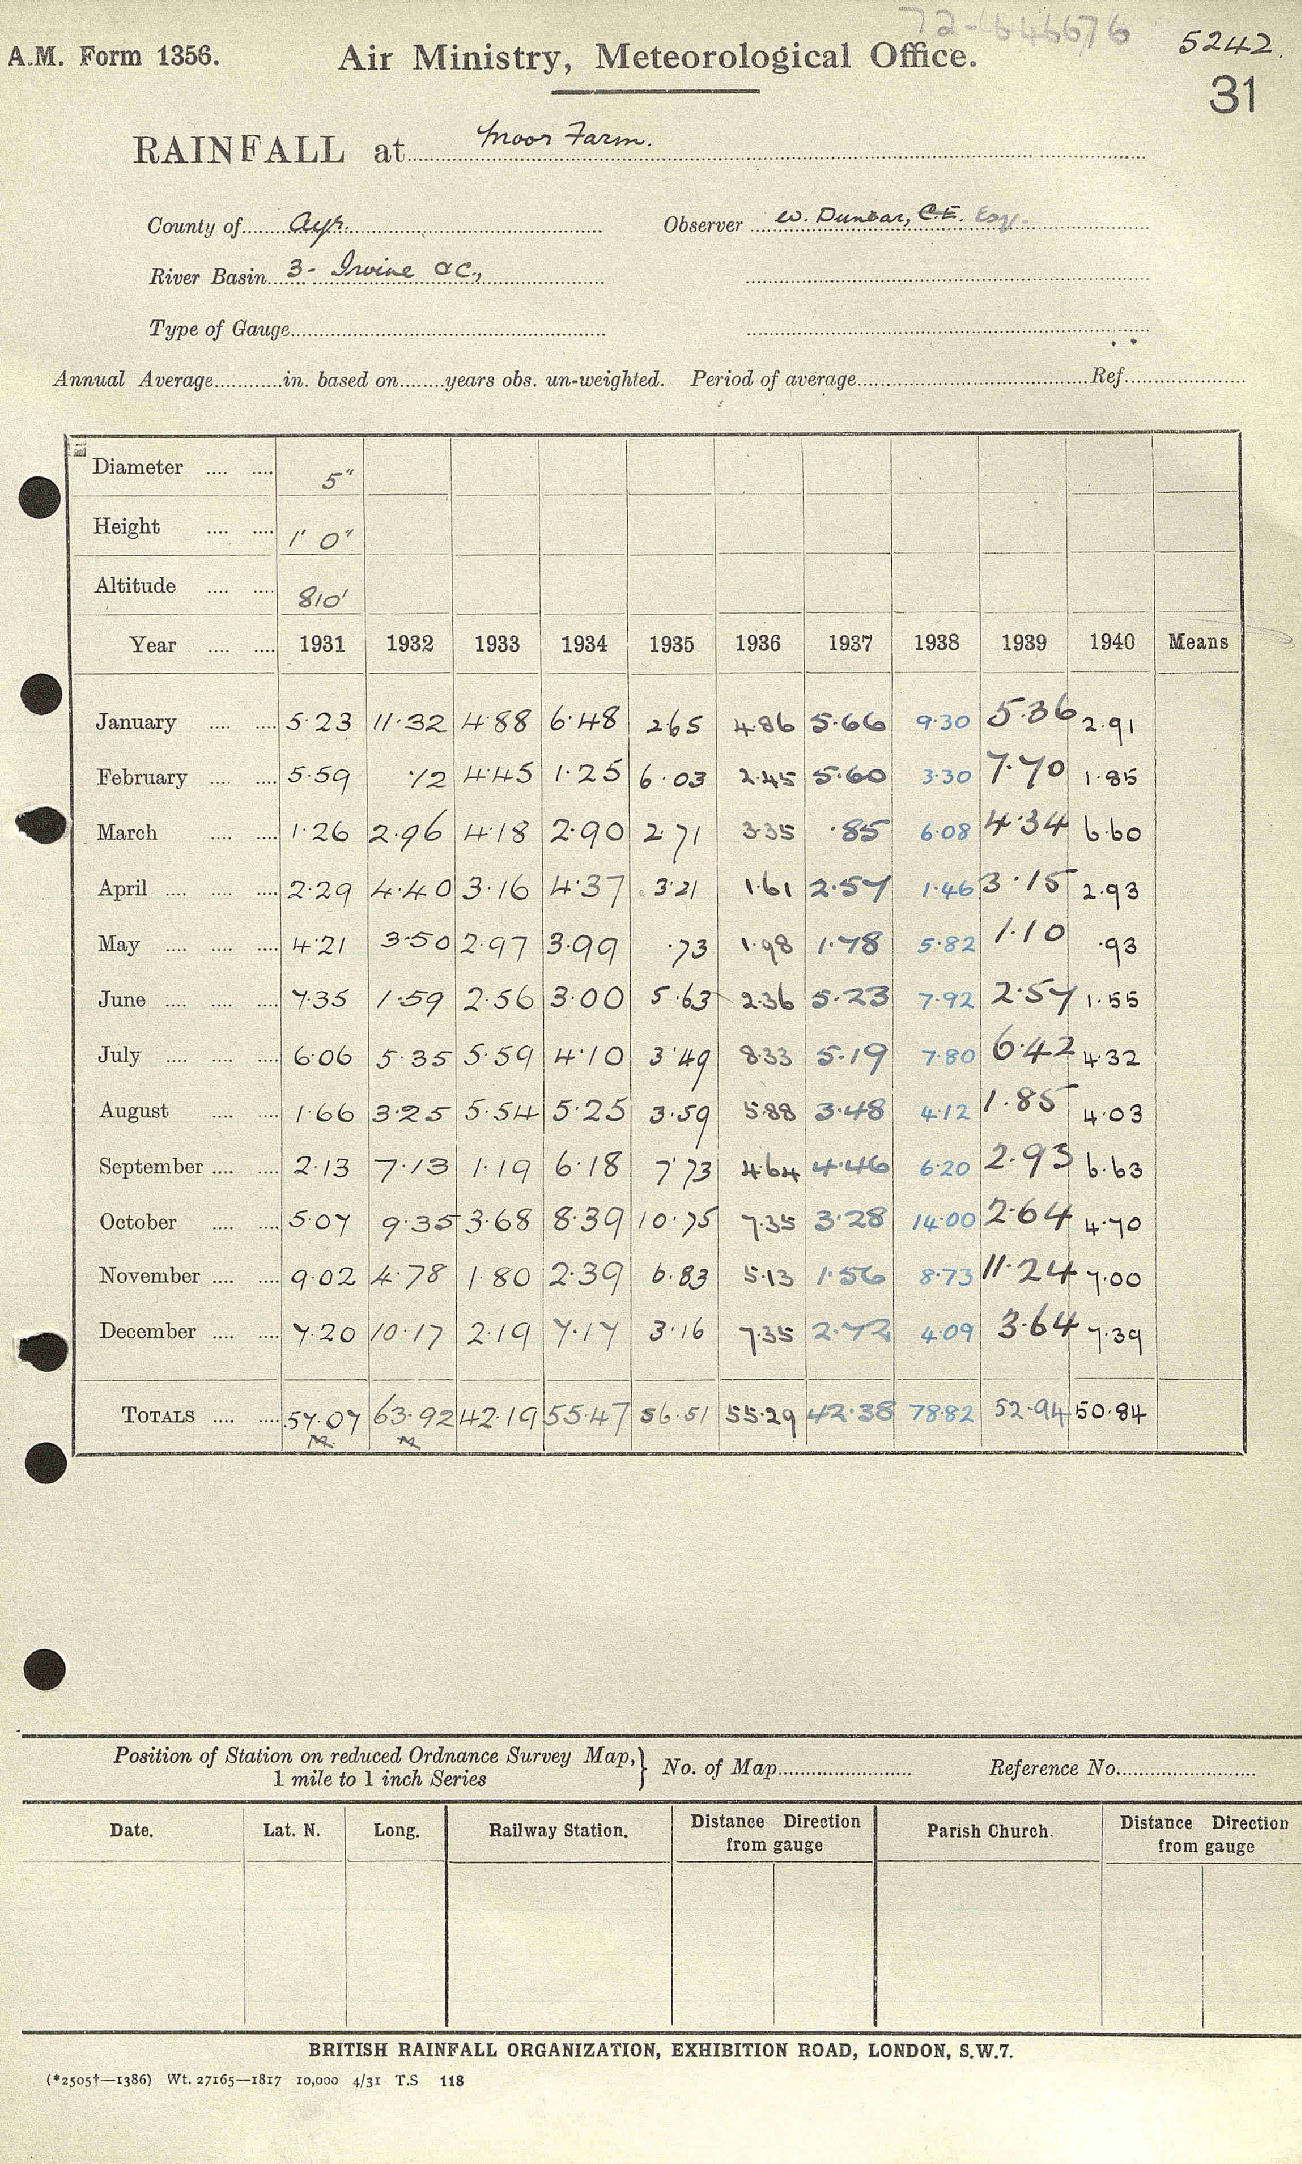 72-646676
5242.
A.M. Form 1356. Air Ministry, Meteorological Office.
31
RAINFALL at Moor Farm.
County of Ayr. Observer W. Dunbar, C.E. Esq.
River Basin 3 - Irvine &c.,
Type of Gauge
Annual Average in. based on years obs. un-weighted. Period of average Ref.
Diameter 5"
Height 1' 0"
Altitude 810'
Year 1931 1932 1933 1934 1935 1936 1937 1938 1939 1940 Means
January 5.23 11.32 4.88 6.48 2.65 4.86 5.66 9.30 5.36 2.91
February 5.59 .12 4.45 1.25 6.03 2.45 5.60 3.30 7.70 1.85
March 1.26 2.96 4.18 2.90 2.71 3.35 .85 6.08 4.34 6.60
April 2.29 4.40 3.16 4.37 3.21 1.61 2.57 1.46 3.15 2.93
May 4.21 3.50 2.97 3.99 .73 1.98 1.78 5.82 1.10 .93
June 7.35 1.59 2.56 3.00 5.63 2.36 5.23 7.92 2.57 1.55
July 6.06 5.35 5.59 4.10 3.49 8.33 5.19 7.80 6.42 4.32
August 1.66 3.25 5.54 5.25 3.59 5.88 3.48 4.12 1.85 4.03
September 2.13 7.13 1.19 6.18 7.73 4.64 4.46 6.20 2.93 6.63
October 5.07 9.35 3.68 8.39 10.75 7.35 3.28 14.00 2.64 4.70
November 9.02 4.78 1.80 2.39 6.83 5.13 1.56 8.73 11.24 7.00
December 7.20 10.17 2.19 7.17 3.16 7.35 2.72 4.09 3.64 7.39
TOTALS 57.07 63.92 42.19 55.47 56.51 55.29 42.38 78.82 52.94 50.84
Position of Station on reduced Ordnance Survey Map, } No. of Map Reference No.
1 mile to 1 inch Series
Date. Lat. N. Long. Railway Station. Distance Direction from gauge Parish Church. Distance Direction from gauge
BRITISH RAINFALL ORGANIZATION, EXHIBITION ROAD, LONDON, S.W.7.
(*2505†—1386) Wt. 27165—1817 10,000 4/31 T.S 118